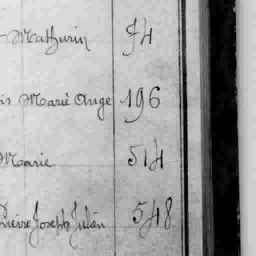 Mathurin 94
is Marie Ange 196
Marie 514
Pierre Joseph Julien 548